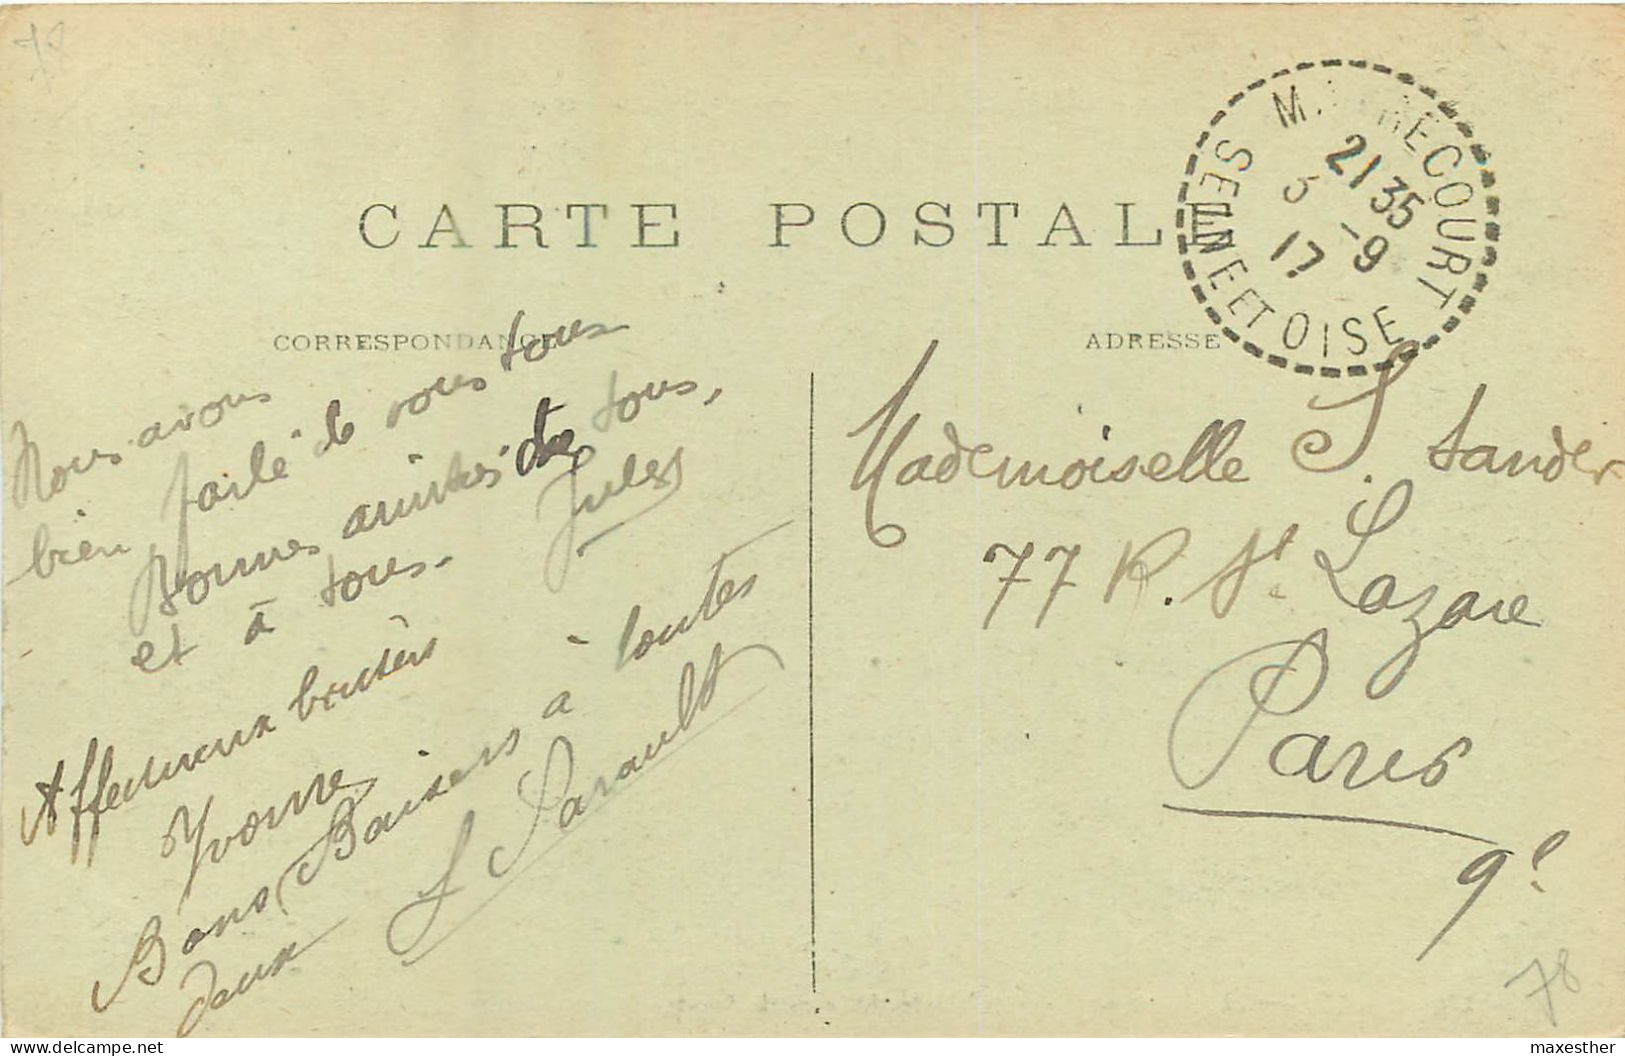 78
CARTE POSTALE
M. RECOURT
SEINE ET OISE
21 35
5 -9
17
CORRESPONDANCE
ADRESSE
Nous avons
bien parlé de vous tous
Bonnes amitiés de tous,
et à tous. Jules
Affectueux baisers
Yvonne
Bons Baisers à toutes
deux
Mademoiselle S. Sander
77 R. St Lazare
Paris
9e
78
maxesther